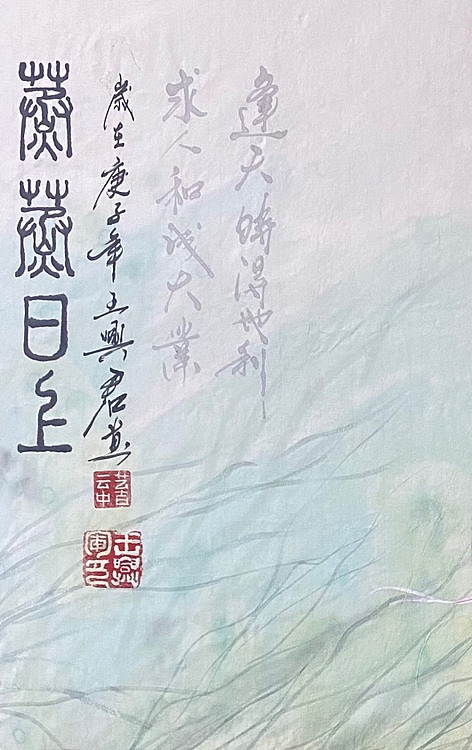 逢天時得地利
求人和成大業
歲在庚子年王興君畫
蒸蒸日上